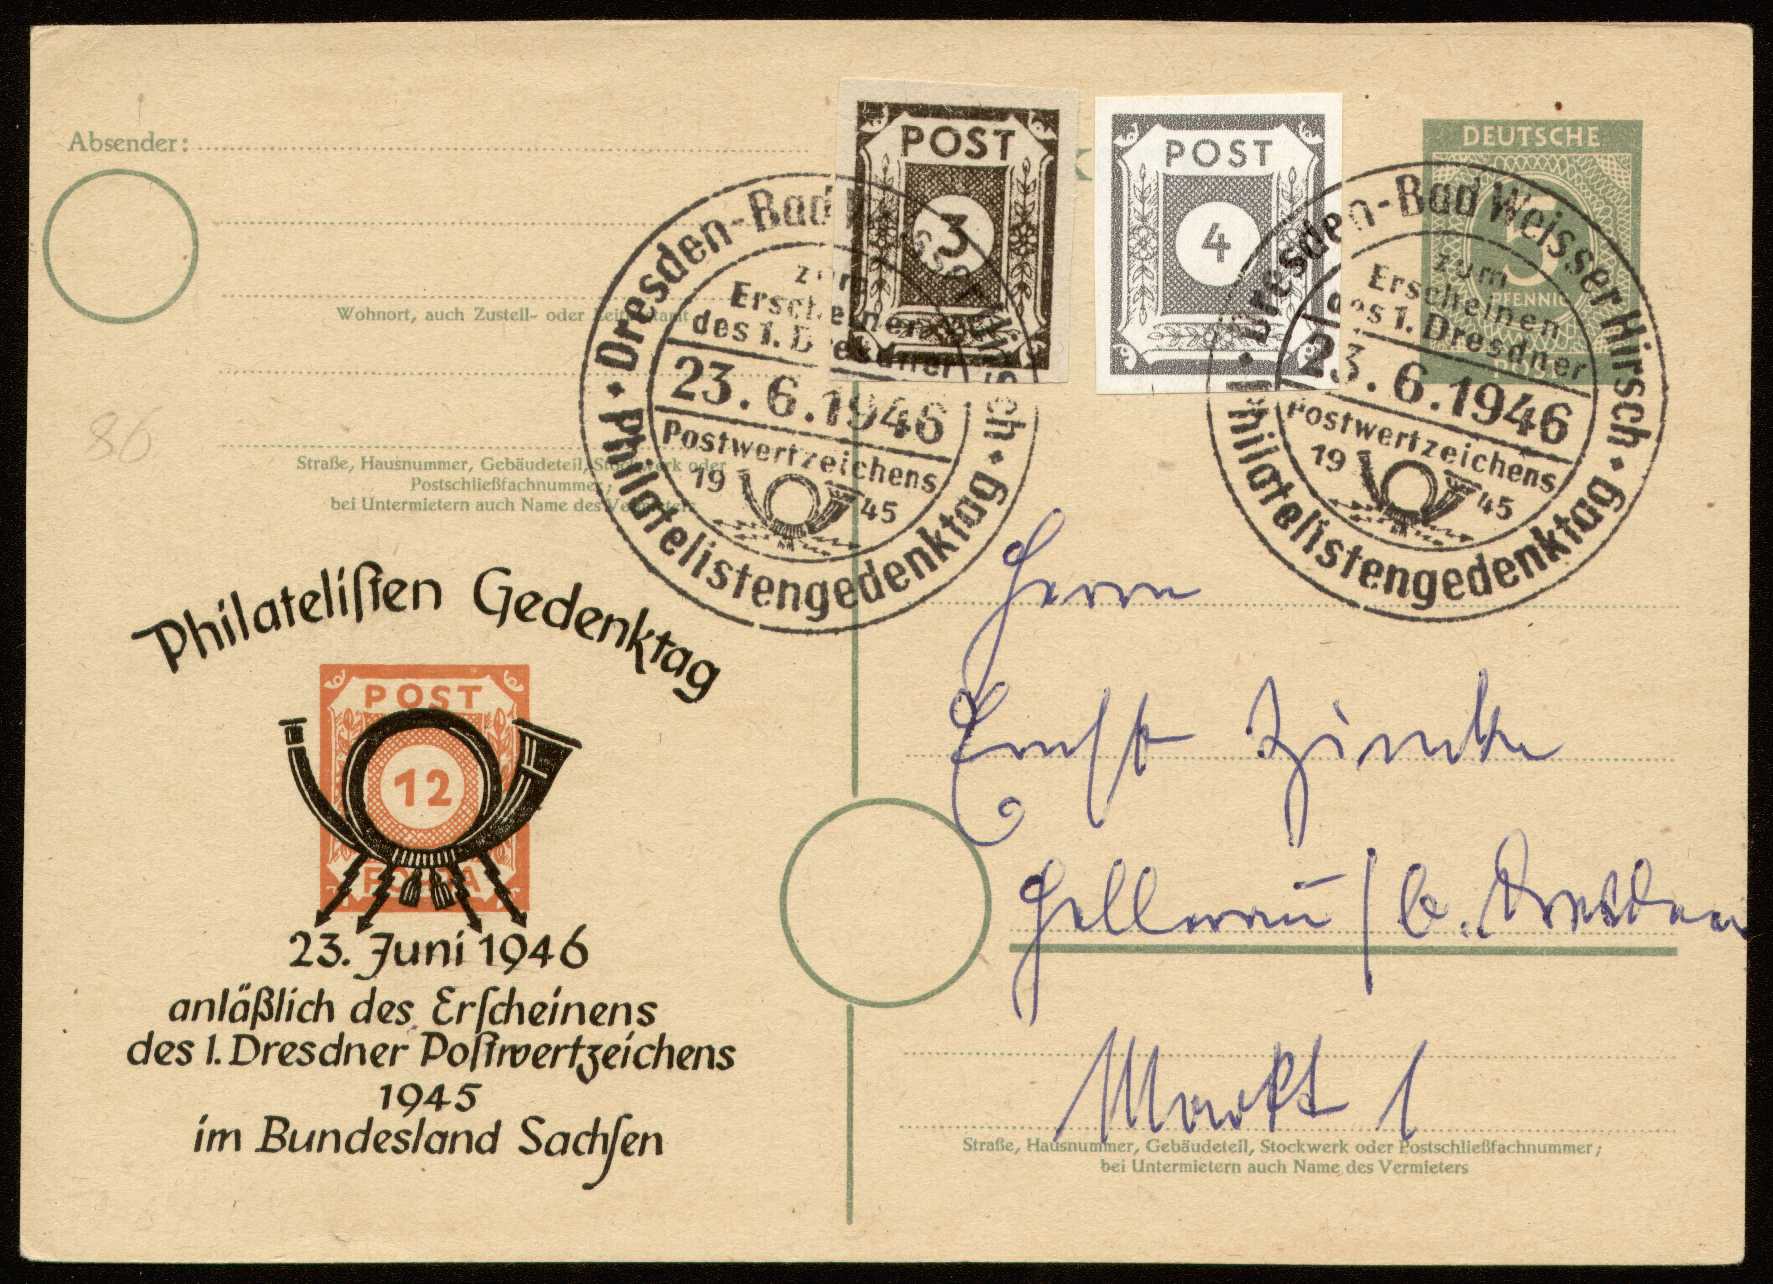 Absender:
Wohnort, auch Zustell- oder Leitpostamt
Straße, Hausnummer, Gebäudeteil, Stockwerk oder
Postschließfachnummer;
bei Untermietern auch Name des Vermieters
86
POST
3
POST
4
DEUTSCHE
PFENNIG
POST
Dresden-Bad
zum
Erscheinen
des 1. Dresdner
23.6.1946
Postwertzeichens
19 45
Philatelistengedenktag
Dresden-Bad Weisser Hirsch
zum
Erscheinen
des 1. Dresdner
23.6.1946
Postwertzeichens
19 45
Philatelistengedenktag
Philateliſten Gedenktag
POST
12
23. Juni 1946
anläßlich des Erſcheinens
des 1. Dresdner Poſtwertzeichens
1945
im Bundesland Sachſen
Herrn
Ernst
Hellerau / b. Dresden
Markt 1
Straße, Hausnummer, Gebäudeteil, Stockwerk oder Postschließfachnummer;
bei Untermietern auch Name des Vermieters